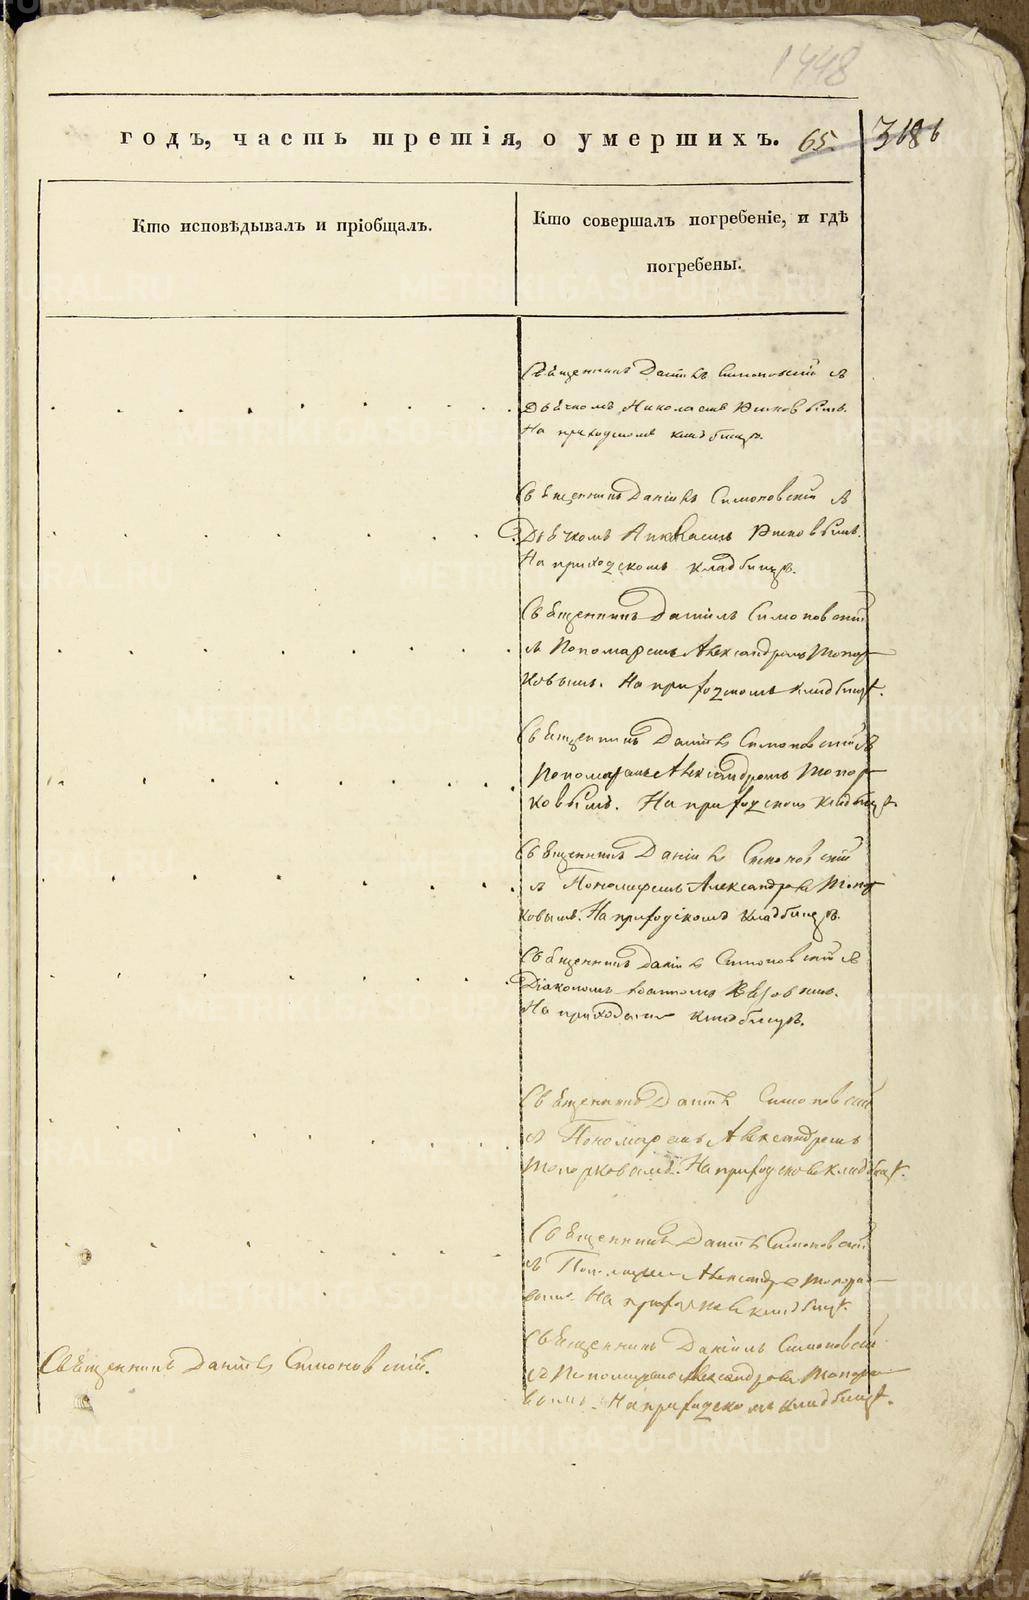 1448
годъ, часть третія, о умершихъ. 65.
Кто исповѣдывалъ и пріобщалъ.
Кто совершалъ погребеніе, и гдѣ
погребены.
Священникъ Даніилъ Симоновскій съ
Дьячкомъ Николаемъ
На приходскомъ кладбищѣ.
Священникъ Даніилъ Симоновскій съ
Дьячкомъ
На приходскомъ кладбищѣ.
Священникъ Даніилъ Симоновскій
съ Пономаремъ Александромъ Топор
ковымъ. На приходскомъ кладбищѣ.
Священникъ Даніилъ Симоновскій съ
Пономаремъ Александромъ Топор
ковымъ. На приходскомъ кладбищѣ.
Священникъ Даніилъ Симоновскій
съ Пономаремъ Александромъ Топор
ковымъ. На приходскомъ кладбищѣ.
Священникъ Даніилъ Симоновскій съ
Діакономъ Іоанномъ
На приходскомъ кладбищѣ.
Священникъ Даніилъ Симоновскій
съ Пономаремъ Александромъ
Топорковымъ. На приходскомъ кладбищѣ.
Священникъ Даніилъ Симоновскій
съ Пономаремъ Александромъ Топорко
вымъ. На приходскомъ кладбищѣ.
Священникъ Даніилъ Симоновскій.
Священникъ Даніилъ Симоновскій
съ Пономаремъ Александромъ Топорко
вымъ. На приходскомъ кладбищѣ.
METRIKI.GASO-URAL.RU